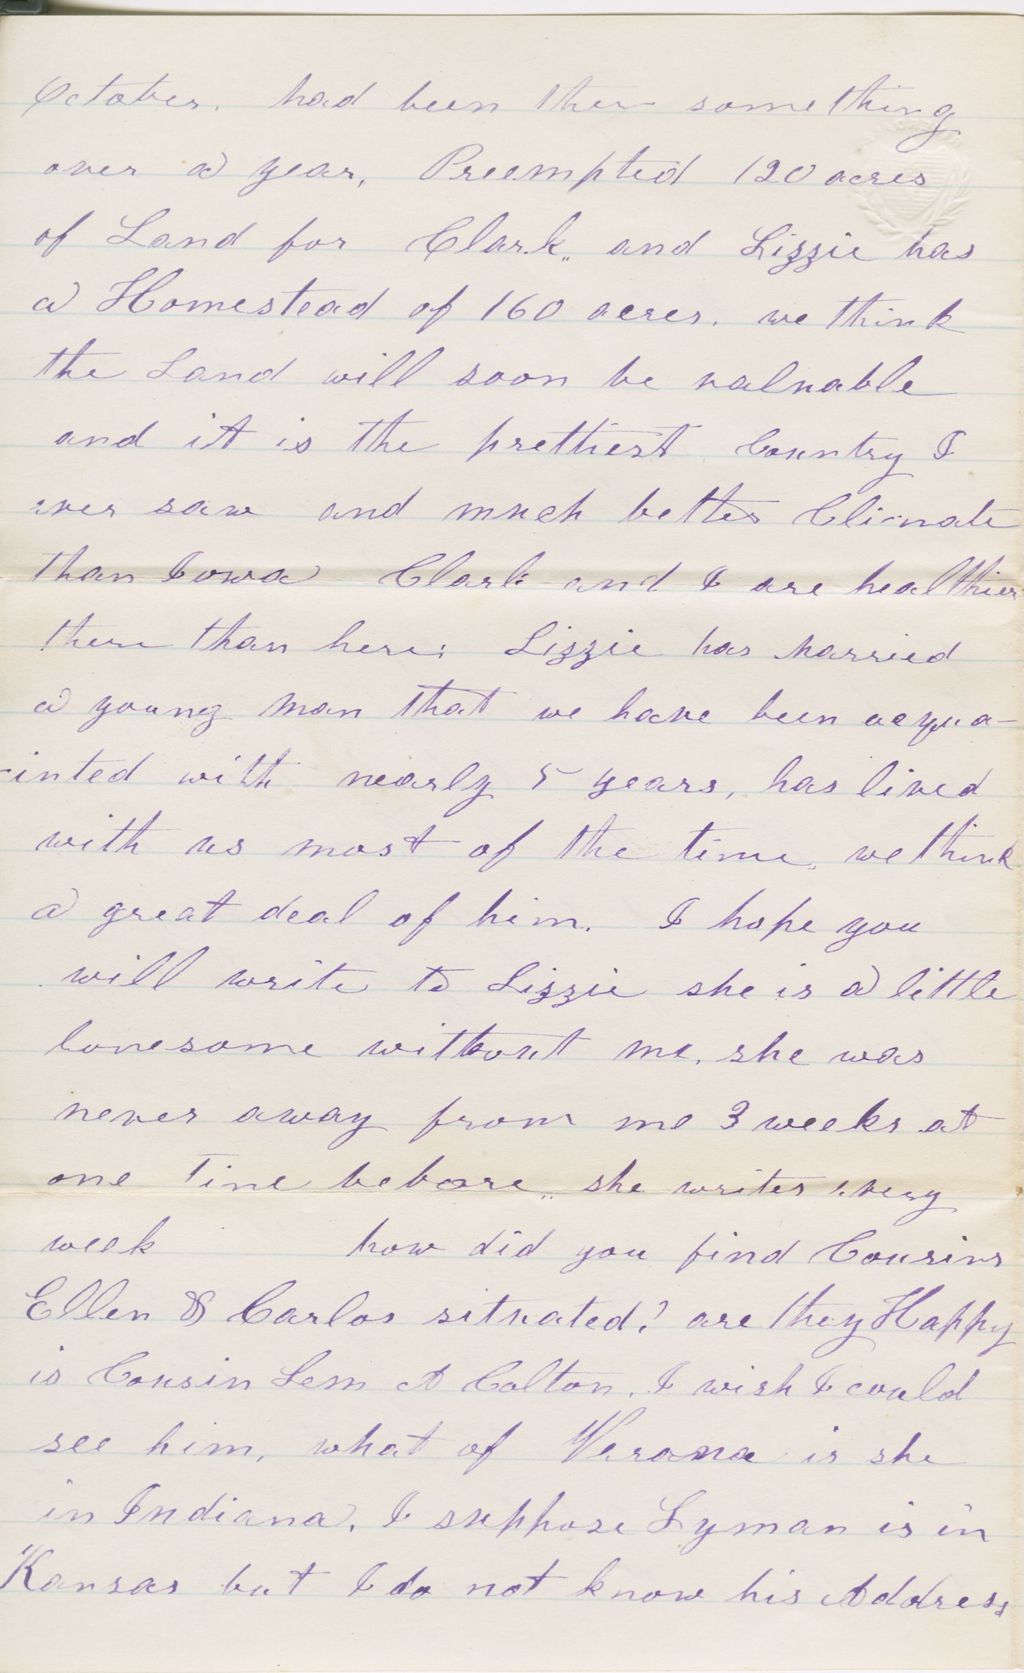 October. had been ther something
over a year, Preempted 120 acres
of Land for Clark,, and Lizzie has
a Homestead of 160 acres. we think
the Land will soon be valuable
and it is the prettiest Country I
ever saw and much better Climate
than Iowa Clark and I are healthier
there than here; Lizzie has married
a young man that we have been acqua-
-inted with nearly 5 years, has lived
with us most of the time, we think
a great deal of him. I hope you
will write to Lizzie she is a little
lonesome without me. she was
never away from me 3 weeks at
one Time before,, she writes every
week how did you find Cousins
Ellen & Carlos situated? are they Happy
is Cousin Lem at Colton. I wish I could
see him, what of Verana is she
in Indiana. I suppose Lyman is in
Kansas but I do not know his Address